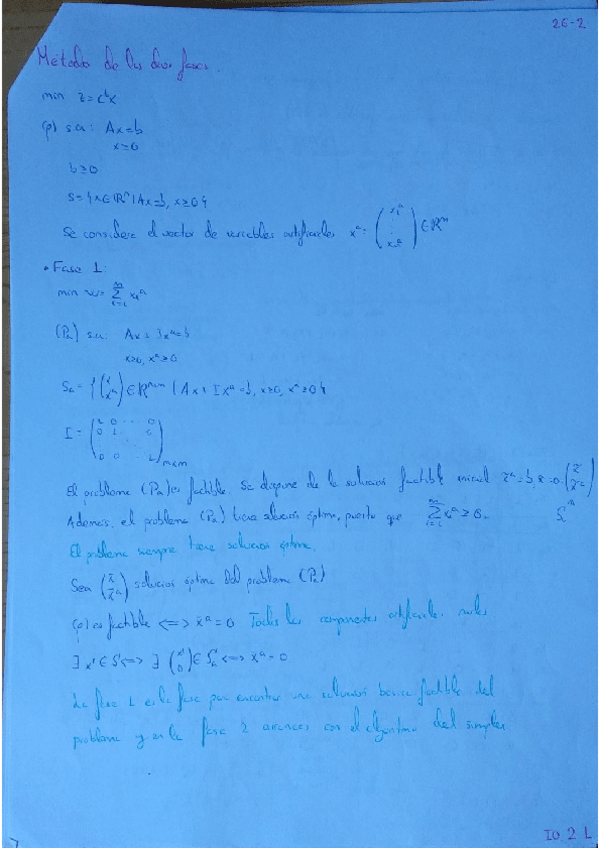 26-2
Método de las dos fases.
min z=cᵗx
(P) s.a: Ax=b
x≥0
b≥0
S={x∈ℝⁿ | Ax=b, x≥0}
Se considera el vector de variables artificiales xᵃ = (x₁ᵃ ⋮ xₘᵃ) ∈ ℝᵐ
• Fase 1:
min w= Σᵢ₌₁ᵐ xᵢᵃ
(Pₐ) s.a: Ax + Ixᵃ=b
x≥0, xᵃ≥0
Sₐ = {(x xᵃ) ∈ ℝⁿ⁺ᵐ | Ax + Ixᵃ=b, x≥0, xᵃ≥0}
I = (1 0 ⋯ 0
0 1 ⋯ 0
⋱
0 0 ⋯ 1)ₘₓₘ
El problema (Pₐ) es factible. Se dispone de la solución factible inicial x̄ᵃ=b, x̄=0. (x̄ x̄ᵃ)
Además, el problema (Pₐ) tiene solución óptima, puesto que Σᵢ₌₁ᵐ xᵢᵃ ≥ 0.
El problema siempre tiene solución óptima.
Sea (x̄ x̄ᵃ) solución óptima del problema (Pₐ)
(P) es factible <=> x̄ᵃ=0 Todas las componentes artificiales nulas
∃ x'∈S <=> ∃ (x' 0) ∈ Sₐ <=> x̄ᵃ=0
La fase 1 es la fase para encontrar una solución básica factible del
problema y en la fase 2 arrancas con el algoritmo del simplex
IO 2 1